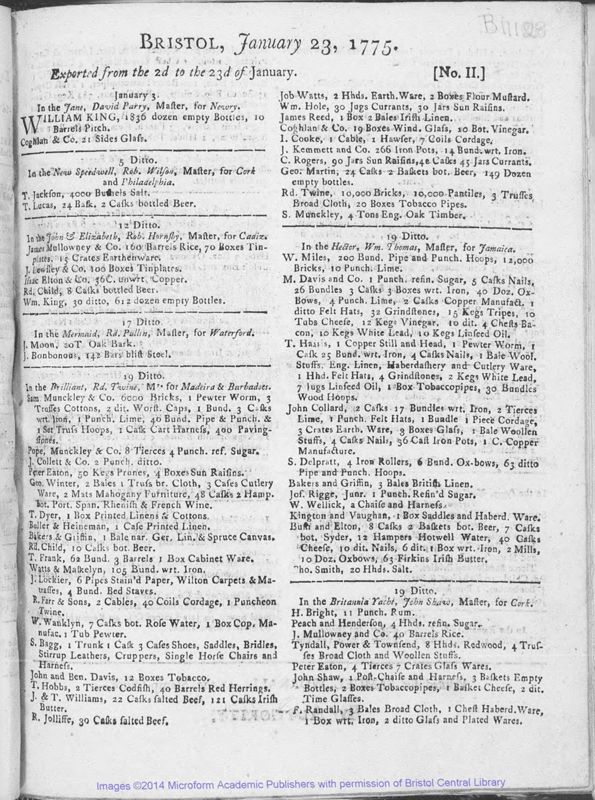 B 11188
BRISTOL, January 23, 1775.
Exported from the 2d to the 23d of January. [No. II.]
January 3.
In the Jane, David Parry, Master, for Newry.
WILLIAM KING, 1836 dozen empty Bottles, 10
Barrels Pitch.
Coghlan & Co. 21 Sides Glass.
5 Ditto.
In the New Speedwell, Rob. Wilson, Master, for Cork
and Philadelphia.
T. Jackson, 4000 Bushels Salt.
T. Lucas, 24 Bask. 2 Casks bottled Beer.
12 Ditto.
In the John & Elizabeth, Rob. Hornsby, Master, for Cadiz.
James Mullowney & Co. 160 Barrels Rice, 70 Boxes Tin-
plates, 15 Crates Earthenware.
J. & Co. 100 Boxes Tinplates.
Isaac Elton & Co. 56C. unwrt. Copper.
Rd. Child, 8 Casks bottled Beer.
Wm. King, 30 ditto, 612 dozen empty Bottles.
17 Ditto.
In the Mermaid, Rd. Pullin, Master, for Waterford.
J. Moon, 20T Oak Bark.
J. Bonbonous, 142 Bars blist Steel.
19 Ditto.
In the Brilliant, Rd. Twine, Mr. for Madeira & Barbadoes.
Sam Munckley & Co. 6000 Bricks, 1 Pewter Worm, 3
Trusses Cottons, 2 dit. Worst. Caps, 1 Bund. 3 Casks
wrt. Iron, 1 Punch. Lime, 40 Bund. Pipe & Punch. &
1 Set Truss Hoops, 1 Cask Cart Harness, 400 Paving-
stones.
Pope, Munckley & Co. 8 Tierces 4 Punch. ref. Sugar.
J. Collett & Co. 2 Punch. ditto.
Peter Eaton, 50 Kegs Prunes, 4 Boxes Sun Raisins.
Geo. Winter, 2 Bales 1 Truss br. Cloth, 3 Cases Cutlery
Ware, 2 Mats Mahogany Furniture, 48 Casks 2 Hamp.
bot. Port. Span. Rhenish & French Wine.
T. Dyer, 1 Box Printed Linens & Cottons.
Buller & Heineman, 1 Case Printed Linen.
Bakers & Griffin, 1 Bale nar. Ger. Lin. & Spruce Canvas.
Rd. Child, 10 Casks bot. Beer.
T. Frank, 62 Bund. 3 Barrels 1 Box Cabinet Ware.
Watts & Maskelyn, 105 Bund. wrt. Iron.
J. Lockier, 6 Pipes Stain'd Paper, Wilton Carpets & Ma-
trasses, 4 Bund. Bed Staves.
R. Farr & Sons, 2 Cables, 40 Coils Cordage, 1 Puncheon
Twine.
W. Wanklyn, 7 Casks bot. Rose Water, 1 Box Cop. Ma-
nufac. 1 Tub Pewter.
S. Bagg, 1 Trunk 1 Cask 3 Cases Shoes, Saddles, Bridles,
Stirrup Leathers, Cruppers, Single Horse Chairs and
Harness.
John and Ben. Davis, 12 Boxes Tobacco.
T. Hobbs, 2 Tierces Codfish, 40 Barrels Red Herrings.
J. & T. Williams, 22 Casks salted Beef, 121 Casks Irish
Butter.
R. Jolliffe, 30 Casks salted Beef.
Job Watts, 2 Hhds. Earth. Ware, 2 Boxes Flour Mustard.
Wm. Hole, 30 Jugs Currants, 30 Jars Sun Raisins.
James Reed, 1 Box 2 Bales Irish Linen.
Coghlan & Co. 19 Boxes Wind. Glass, 10 Bot. Vinegar.
I. Cooke, 1 Cable, 1 Hawser, 7 Coils Cordage,
J. Kemmett and Co. 266 Iron Pots, 14 Bund. wrt. Iron.
C. Rogers, 90 Jars Sun Raisins, 42 Casks 45 Jars Currants.
Geo. Martin, 24 Casks 2 Baskets bot. Beer, 149 Dozen
empty bottles.
Rd. Twine, 10,000 Bricks, 10,000 Pantiles, 3 Trusses
Broad Cloth, 20 Boxes Tobacco Pipes.
S. Munckley, 4 Tons Eng. Oak Timber.
19 Ditto.
In the Hector, Wm. Thomas, Master, for Jamaica.
W. Miles, 200 Bund. Pipe and Punch. Hoops, 12,000
Bricks, 10 Punch. Lime.
M. Davis and Co. 1 Punch. refin. Sugar, 5 Casks Nails,
26 Bundles 2 Casks 3 Boxes wrt. Iron, 40 Doz. Ox-
Bows, 4 Punch. Lime, 2 Casks Copper Manufact. 1
ditto Felt Hats, 32 Grindstones, 15 Kegs Tripes, 10
Tubs Cheese, 12 Kegs Vinegar. 10 dit. 4 Chests Ba-
con, 10 Kegs White Lead, 10 Kegs Linseed Oil.
T. Harris, 1 Copper Still and Head, 1 Pewter Worm, 1
Cask 25 Bund. wrt. Iron, 4 Casks Nails, 1 Bale Wool.
Stuffs, Eng. Linen, Haberdashery and Cutlery Ware,
1 Hhd. Felt Hats, 4 Grindstones, 2 Kegs White Lead,
7 Jugs Linseed Oil, 1 Box Tobaccopipes, 30 Bundles
Wood Hoops.
John Collard, 2 Casks 17 Bundles wrt. Iron, 2 Tierces
Lime, 1 Punch. Felt Hats, 1 Bundle 1 Piece Cordage,
3 Crates Earth. Ware, 3 Boxes Glass, 1 Bale Woollen
Stuffs, 4 Casks Nails, 36 Cast Iron Pots, 1 C. Copper
Manufacture.
S. Delpratt, 4 Iron Rollers, 6 Bund. Ox-bows, 63 ditto
Pipe and Punch. Hoops.
Bakers and Griffin, 3 Bales British Linen.
Jos. Rigge, Junr. 1 Punch. Refin'd Sugar.
W. Wellick, 2 Chaise and Harness.
Kington and Vaughan, 1 Box Saddles and Haberd. Ware.
Bush and Elton, 8 Casks 2 Baskets bot. Beer, 7 Casks
bot. Syder, 12 Hampers Hotwell Water, 40 Casks
Cheese, 10 dit. Nails, 6 dit. 1 Box wrt. Iron, 2 Mills,
10 Doz. Oxbows, 65 Firkins Irish Butter.
Tho. Smith, 20 Hhds. Salt.
19 Ditto.
In the Britannia Yacht, John Shaw, Master, for Cork.
H. Bright, 11 Punch. Rum.
Peach and Henderson, 4 Hhds. refin. Sugar.
J. Mullowney and Co. 40 Barrels Rice.
Tyndall, Power & Townsend, 8 Hhds. Redwood, 4 Trus-
ses Broad Cloth and Woollen Stuffs.
Peter Eaton, 4 Tierces 7 Crates Glass Wares.
John Shaw, 1 Post-Chaise and Harness, 3 Baskets Empty
Bottles, 2 Boxes Tobaccopipes, 1 Basket Cheese, 2 dit.
Time Glasses.
F. Randall, 3 Bales Broad Cloth, 1 Chest Haberd. Ware,
1 Box wrt. Iron, 2 ditto Glass and Plated Wares.
Images ©2014 Microform Academic Publishers with permission of Bristol Central Library